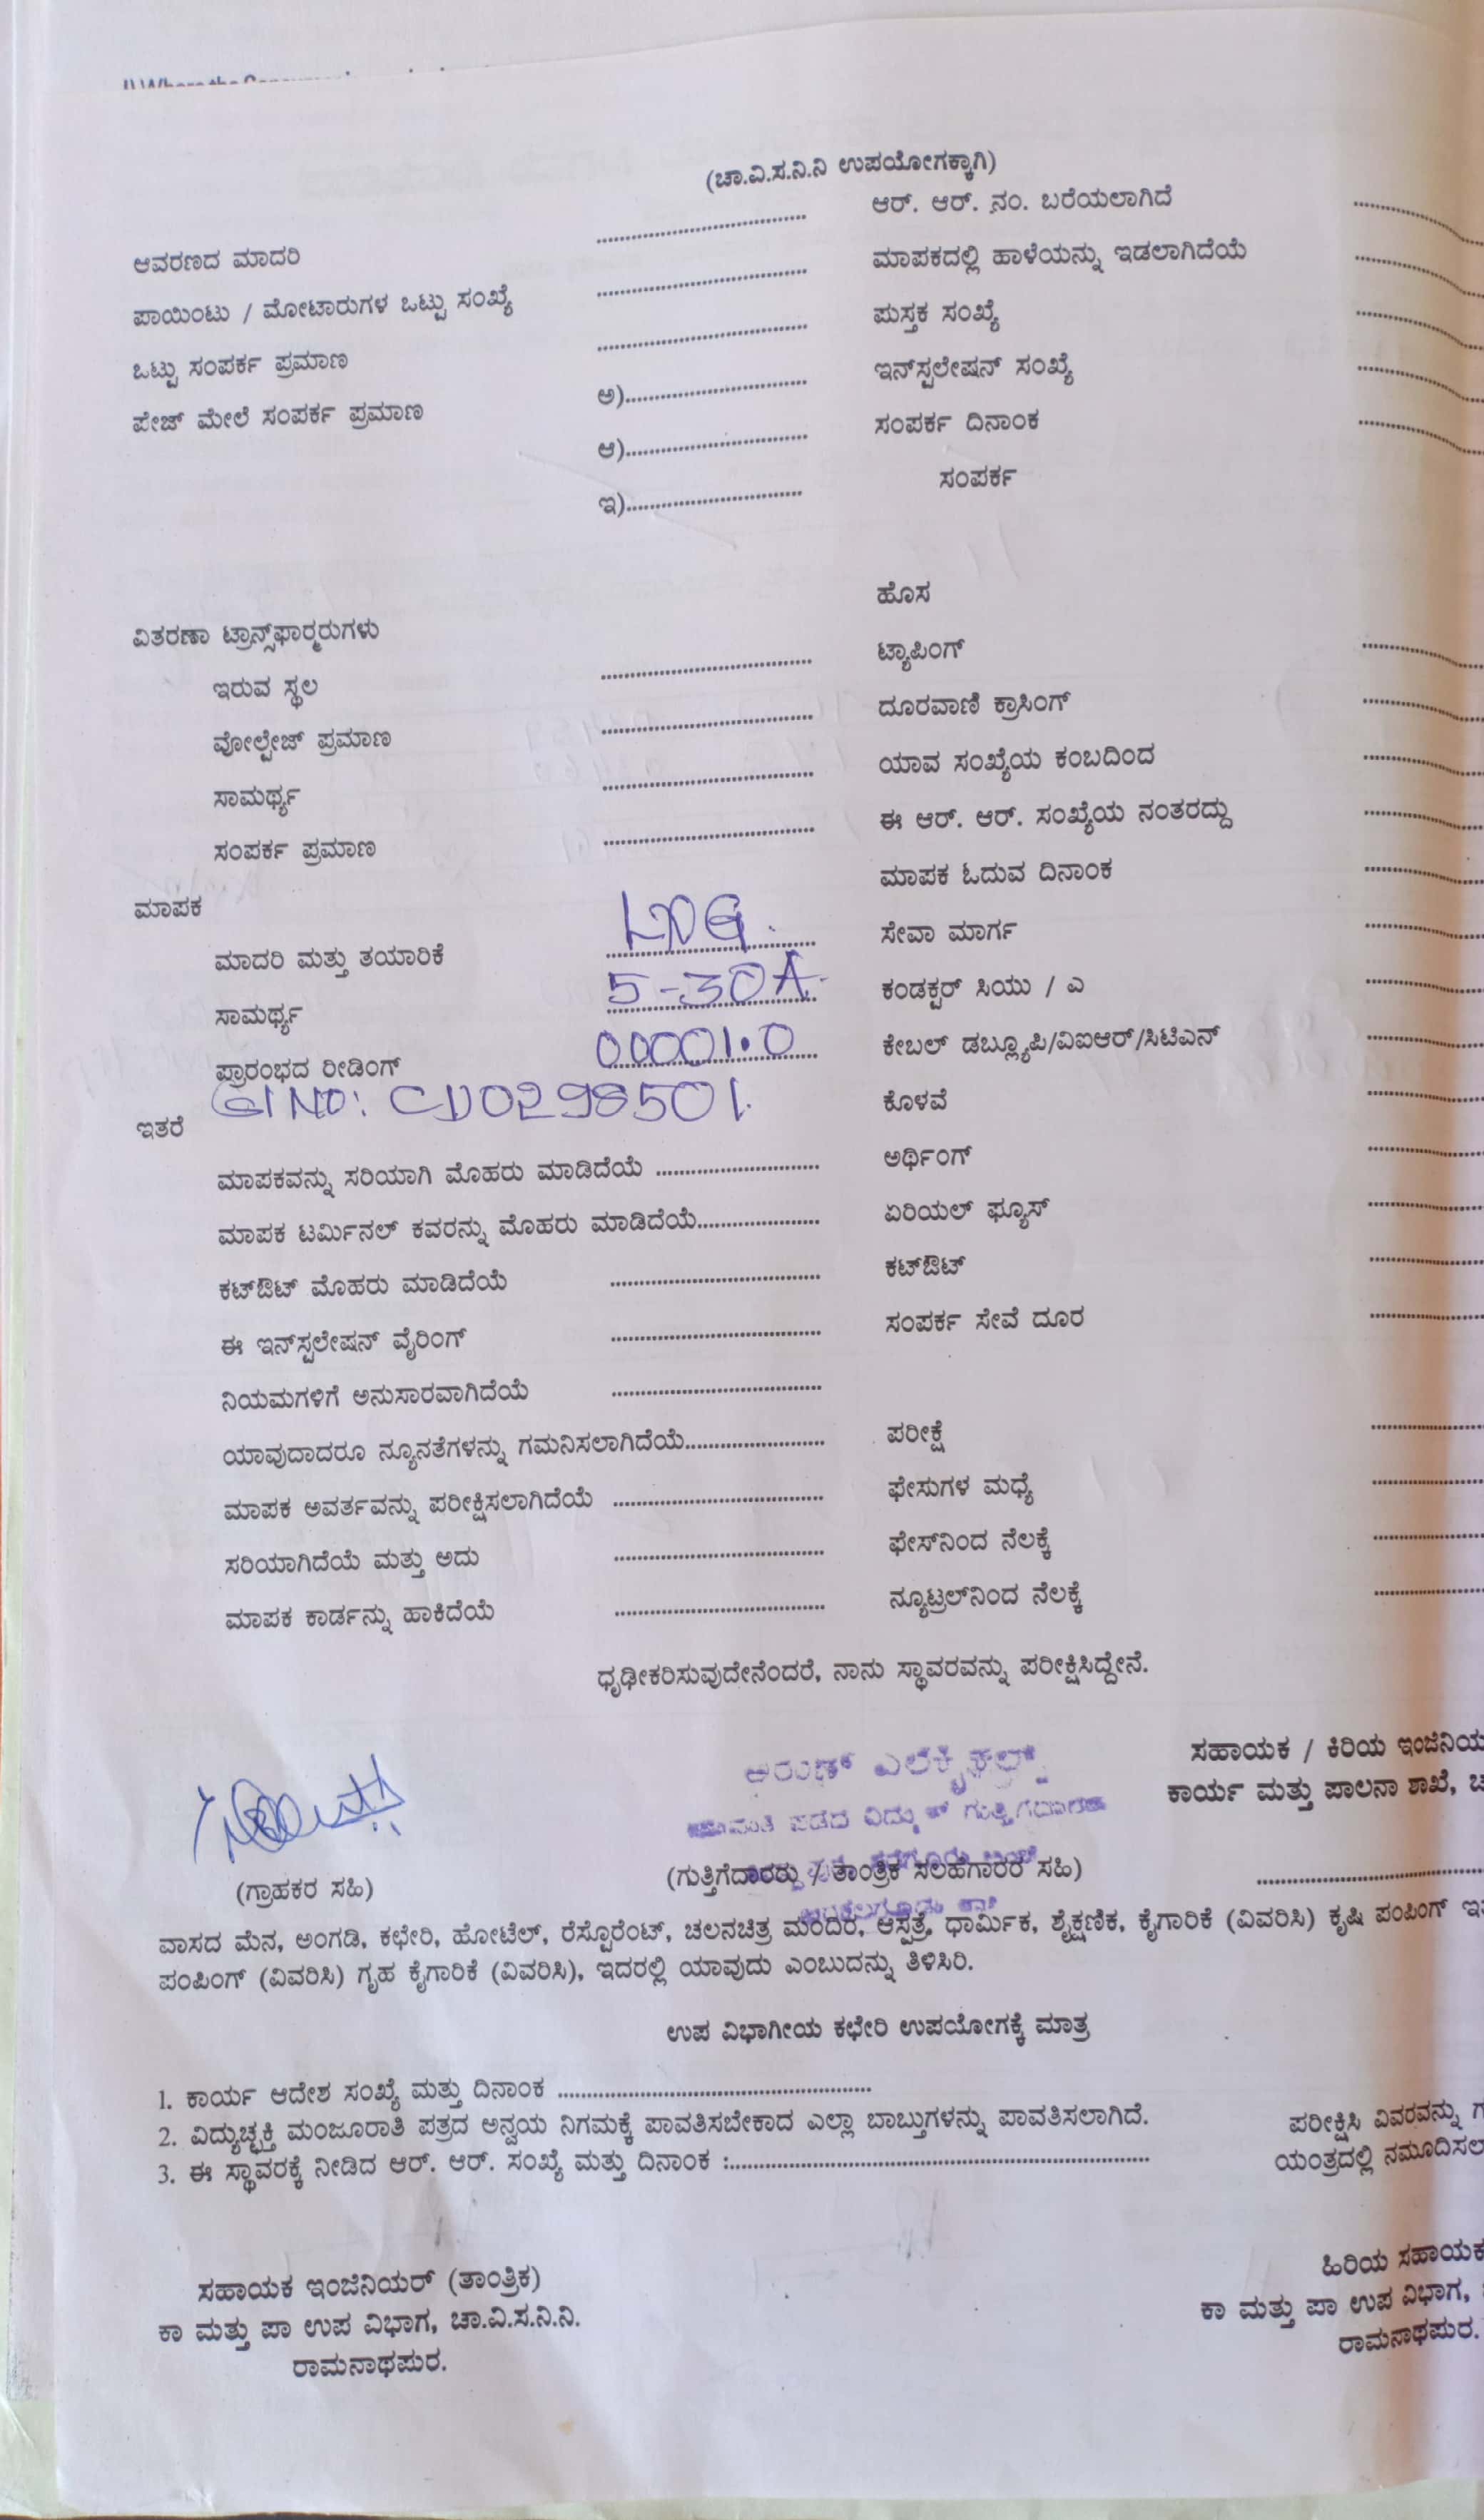 (ಚಾ.ವಿ.ಸ.ನಿ.ನಿ ಉಪಯೋಗಕ್ಕಾಗಿ)
ಆವರಣದ ಮಾದರಿ ........ ಆರ್. ಆರ್. ನಂ. ಬರೆಯಲಾಗಿದೆ ........
ಪಾಯಿಂಟು / ಮೋಟಾರುಗಳ ಒಟ್ಟು ಸಂಖ್ಯೆ ........ ಮಾಪಕದಲ್ಲಿ ಹಾಳೆಯನ್ನು ಇಡಲಾಗಿದೆಯೆ ........
ಒಟ್ಟು ಸಂಪರ್ಕ ಪ್ರಮಾಣ ........ ಪುಸ್ತಕ ಸಂಖ್ಯೆ ........
ಪೇಜ್ ಮೇಲೆ ಸಂಪರ್ಕ ಪ್ರಮಾಣ ಅ)........ ಇನ್‌ಸ್ಪಲೇಷನ್ ಸಂಖ್ಯೆ ........
ಆ)........ ಸಂಪರ್ಕ ದಿನಾಂಕ ........
ಇ)........ ಸಂಪರ್ಕ
ಹೊಸ
ವಿತರಣಾ ಟ್ರಾನ್ಸ್‌ಫಾರ್‍ಮರುಗಳು
ಇರುವ ಸ್ಥಲ ........ ಟ್ಯಾಪಿಂಗ್ ........
ವೋಲ್ಟೇಜ್ ಪ್ರಮಾಣ ........ ದೂರವಾಣಿ ಕ್ರಾಸಿಂಗ್ ........
ಸಾಮರ್ಥ್ಯ ........ ಯಾವ ಸಂಖ್ಯೆಯ ಕಂಬದಿಂದ ........
ಸಂಪರ್ಕ ಪ್ರಮಾಣ ........ ಈ ಆರ್. ಆರ್. ಸಂಖ್ಯೆಯ ನಂತರದ್ದು ........
ಮಾಪಕ ಮಾಪಕ ಓದುವ ದಿನಾಂಕ ........
ಮಾದರಿ ಮತ್ತು ತಯಾರಿಕೆ ........ ಸೇವಾ ಮಾರ್ಗ ........
ಸಾಮರ್ಥ್ಯ 5-30A ಕಂಡಕ್ಟರ್ ಸಿಯು / ಎ ........
ಪ್ರಾರಂಭದ ರೀಡಿಂಗ್ 00001.0 ಕೇಬಲ್ ಡಬ್ಲ್ಯೂಪಿ/ವಿಐಆರ್/ಸಿಟಿಎನ್ ........
NO: CD0298501. ಕೊಳವೆ ........
ಇತರೆ
ಮಾಪಕವನ್ನು ಸರಿಯಾಗಿ ಮೊಹರು ಮಾಡಿದೆಯೆ ........ ಅರ್ಥಿಂಗ್ ........
ಮಾಪಕ ಟರ್ಮಿನಲ್ ಕವರನ್ನು ಮೊಹರು ಮಾಡಿದೆಯೆ........ ಏರಿಯಲ್ ಫ್ಯೂಸ್ ........
ಕಟ್‌ಔಟ್ ಮೊಹರು ಮಾಡಿದೆಯೆ ........ ಕಟ್‌ಔಟ್ ........
ಈ ಇನ್‌ಸ್ಪಲೇಷನ್ ವೈರಿಂಗ್ ........ ಸಂಪರ್ಕ ಸೇವೆ ದೂರ ........
ನಿಯಮಗಳಿಗೆ ಅನುಸಾರವಾಗಿದೆಯೆ ........
ಯಾವುದಾದರೂ ನ್ಯೂನತೆಗಳನ್ನು ಗಮನಿಸಲಾಗಿದೆಯೆ........ ಪರೀಕ್ಷೆ ........
ಮಾಪಕ ಅವರ್ತವನ್ನು ಪರೀಕ್ಷಿಸಲಾಗಿದೆಯೆ ........ ಫೇಸುಗಳ ಮಧ್ಯೆ ........
ಸರಿಯಾಗಿದೆಯೆ ಮತ್ತು ಅದು ........ ಫೇಸ್‌ನಿಂದ ನೆಲಕ್ಕೆ ........
ಮಾಪಕ ಕಾರ್ಡನ್ನು ಹಾಕಿದೆಯೆ ........ ನ್ಯೂಟ್ರಲ್‌ನಿಂದ ನೆಲಕ್ಕೆ ........
ಧೃಢೀಕರಿಸುವುದೇನೆಂದರೆ, ನಾನು ಸ್ಥಾವರವನ್ನು ಪರೀಕ್ಷಿಸಿದ್ದೇನೆ.
ಸಹಾಯಕ / ಕಿರಿಯ ಇಂಜಿನಿಯ
ಕಾರ್ಯ ಮತ್ತು ಪಾಲನಾ ಶಾಖೆ, ಚ
ಅರುಣ್ ಎಲೆಕ್ಟ್ರಿಕಲ್ಸ್
ಪಡೆದ ವಿದ್ಯುತ್ ಗುತ್ತಿಗೆದಾರರು
(ಗ್ರಾಹಕರ ಸಹಿ) (ಗುತ್ತಿಗೆದಾರರು / ತಾಂತ್ರಿಕ ಸಲಹೆಗಾರರ ಸಹಿ) ........
ವಾಸದ ಮೆನ, ಅಂಗಡಿ, ಕಛೇರಿ, ಹೋಟೆಲ್, ರೆಸ್ಟೊರೆಂಟ್, ಚಲನಚಿತ್ರ ಮಂದಿರ, ಆಸ್ಪತ್ರೆ, ಧಾರ್ಮಿಕ, ಶೈಕ್ಷಣಿಕ, ಕೈಗಾರಿಕೆ (ವಿವರಿಸಿ) ಕೃಷಿ ಪಂಪಿಂಗ್
ಪಂಪಿಂಗ್ (ವಿವರಿಸಿ) ಗೃಹ ಕೈಗಾರಿಕೆ (ವಿವರಿಸಿ), ಇದರಲ್ಲಿ ಯಾವುದು ಎಂಬುದನ್ನು ತಿಳಿಸಿರಿ.
ಉಪ ವಿಭಾಗೀಯ ಕಛೇರಿ ಉಪಯೋಗಕ್ಕೆ ಮಾತ್ರ
1. ಕಾರ್ಯ ಆದೇಶ ಸಂಖ್ಯೆ ಮತ್ತು ದಿನಾಂಕ ........
2. ವಿದ್ಯುಚ್ಛಕ್ತಿ ಮಂಜೂರಾತಿ ಪತ್ರದ ಅನ್ವಯ ನಿಗಮಕ್ಕೆ ಪಾವತಿಸಬೇಕಾದ ಎಲ್ಲಾ ಬಾಬ್ತುಗಳನ್ನು ಪಾವತಿಸಲಾಗಿದೆ. ಪರೀಕ್ಷಿಸಿ ವಿವರವನ್ನು
3. ಈ ಸ್ಥಾವರಕ್ಕೆ ನೀಡಿದ ಆರ್. ಆರ್. ಸಂಖ್ಯೆ ಮತ್ತು ದಿನಾಂಕ :........ ಯಂತ್ರದಲ್ಲಿ ನಮೂದಿಸಲ
ಸಹಾಯಕ ಇಂಜಿನಿಯರ್ (ತಾಂತ್ರಿಕ) ಹಿರಿಯ ಸಹಾಯಕ
ಕಾ ಮತ್ತು ಪಾ ಉಪ ವಿಭಾಗ, ಚಾ.ವಿ.ಸ.ನಿ.ನಿ. ಕಾ ಮತ್ತು ಪಾ ಉಪ ವಿಭಾಗ,
ರಾಮನಾಥಪುರ. ರಾಮನಾಥಪುರ.